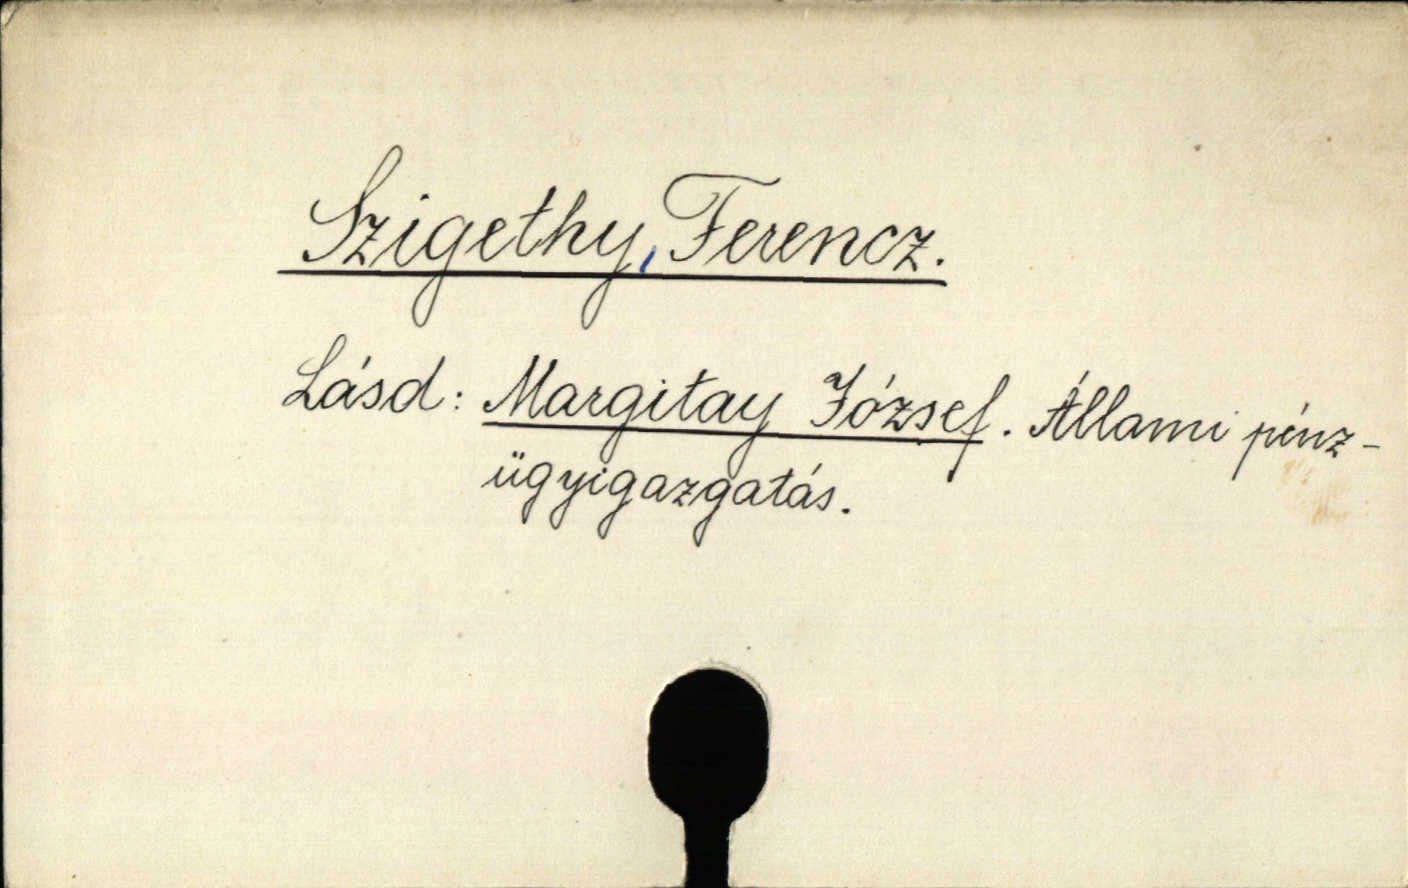 Szigethy, Ferencz.
Lásd: Margitay József. Állami pénz-
ügyigazgatás.